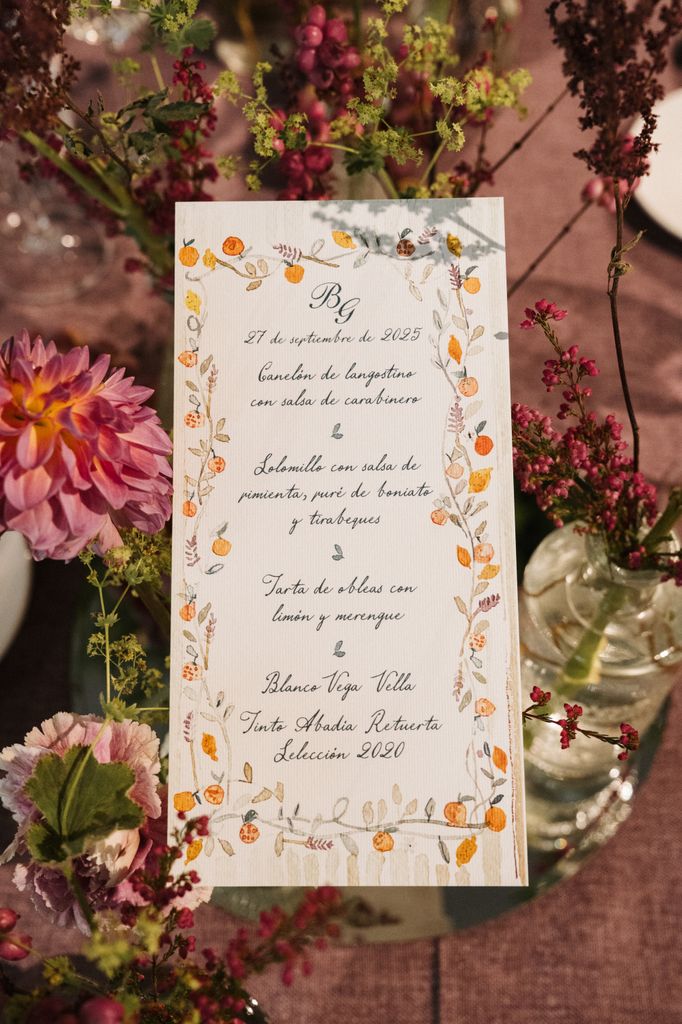 BG
27 de septiembre de 2025
Canelón de langostino
con salsa de carabinero
Solomillo con salsa de
pimienta, puré de boniato
y tirabeques
Tarta de obleas con
limón y merengue
Blanco Vega Vella
Tinto Abadia Retuerta
Selección 2020